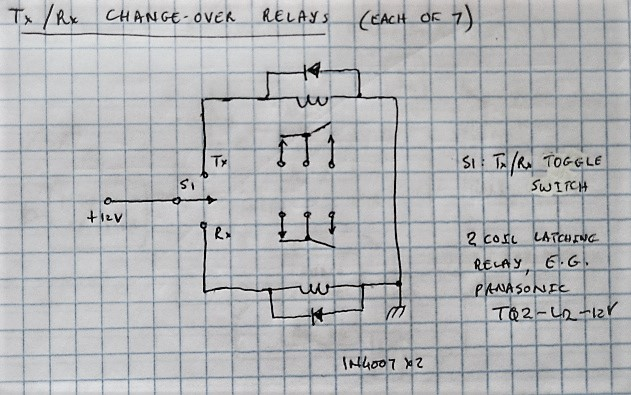 Tx / Rx CHANGE-OVER RELAYS (EACH OF 7)
Tx
S1
+12V
Rx
S1: Tx/Rx TOGGLE
SWITCH
2 COIL LATCHING
RELAY, E.G.
PANASONIC
TQ2-L2-12V
1N4007 x2